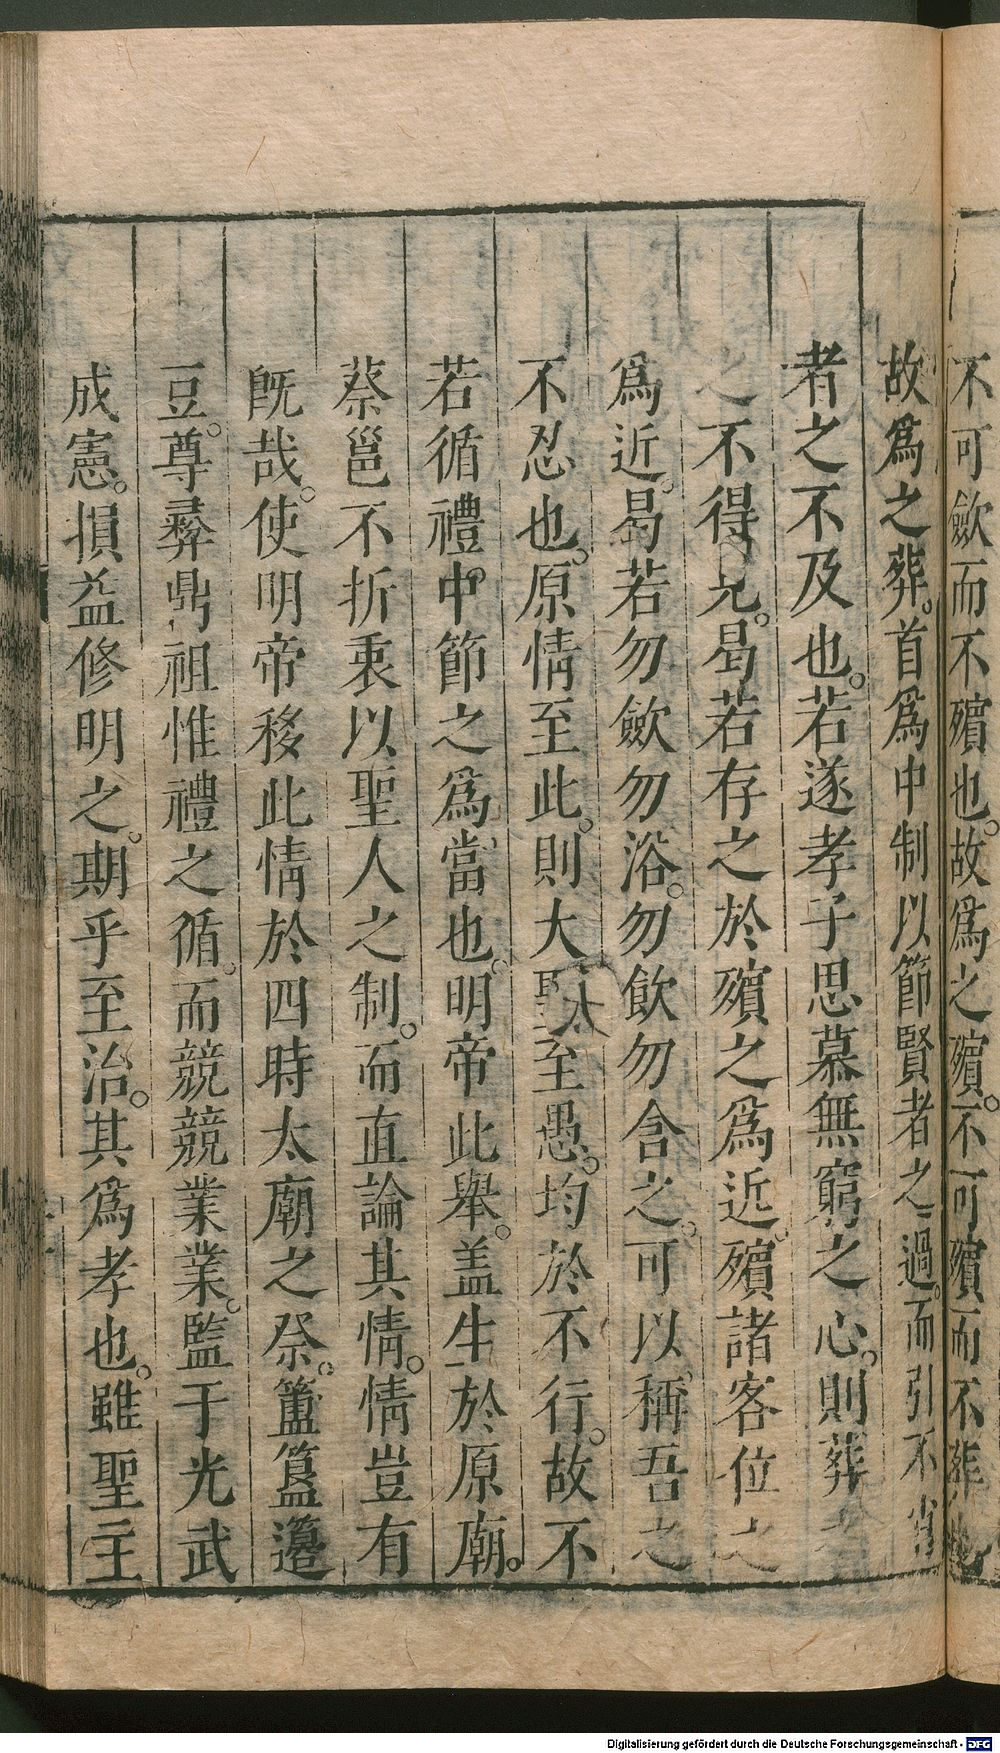 不可歛而不殯也。故爲之殯。不可殯而不葬
故爲之葬。首爲中制以節賢者之過。而引不肖
者之不及也。若遂孝子思慕無窮之心。則葬
之不得已。曷若存之於殯之爲近。殯諸客位之
爲近。曷若勿歛勿浴。勿飲勿含之。可以稱吾之
不忍也。原情至此。則大聖至愚。均於不行。故不
太
若循禮中節之爲當也。明帝此舉。盖生於原廟。
蔡邕不折衷以聖人之制。而直論其情。情豈有
旣哉。使明帝移此情於四時太廟之祭。簠簋籩
豆。尊彞鼎俎惟禮之循。而競競業業。監于光武
成憲。損益修明之。期乎至治。其爲孝也。雖聖主
Digitalisierung gefördert durch die Deutsche Forschungsgemeinschaft - DFG